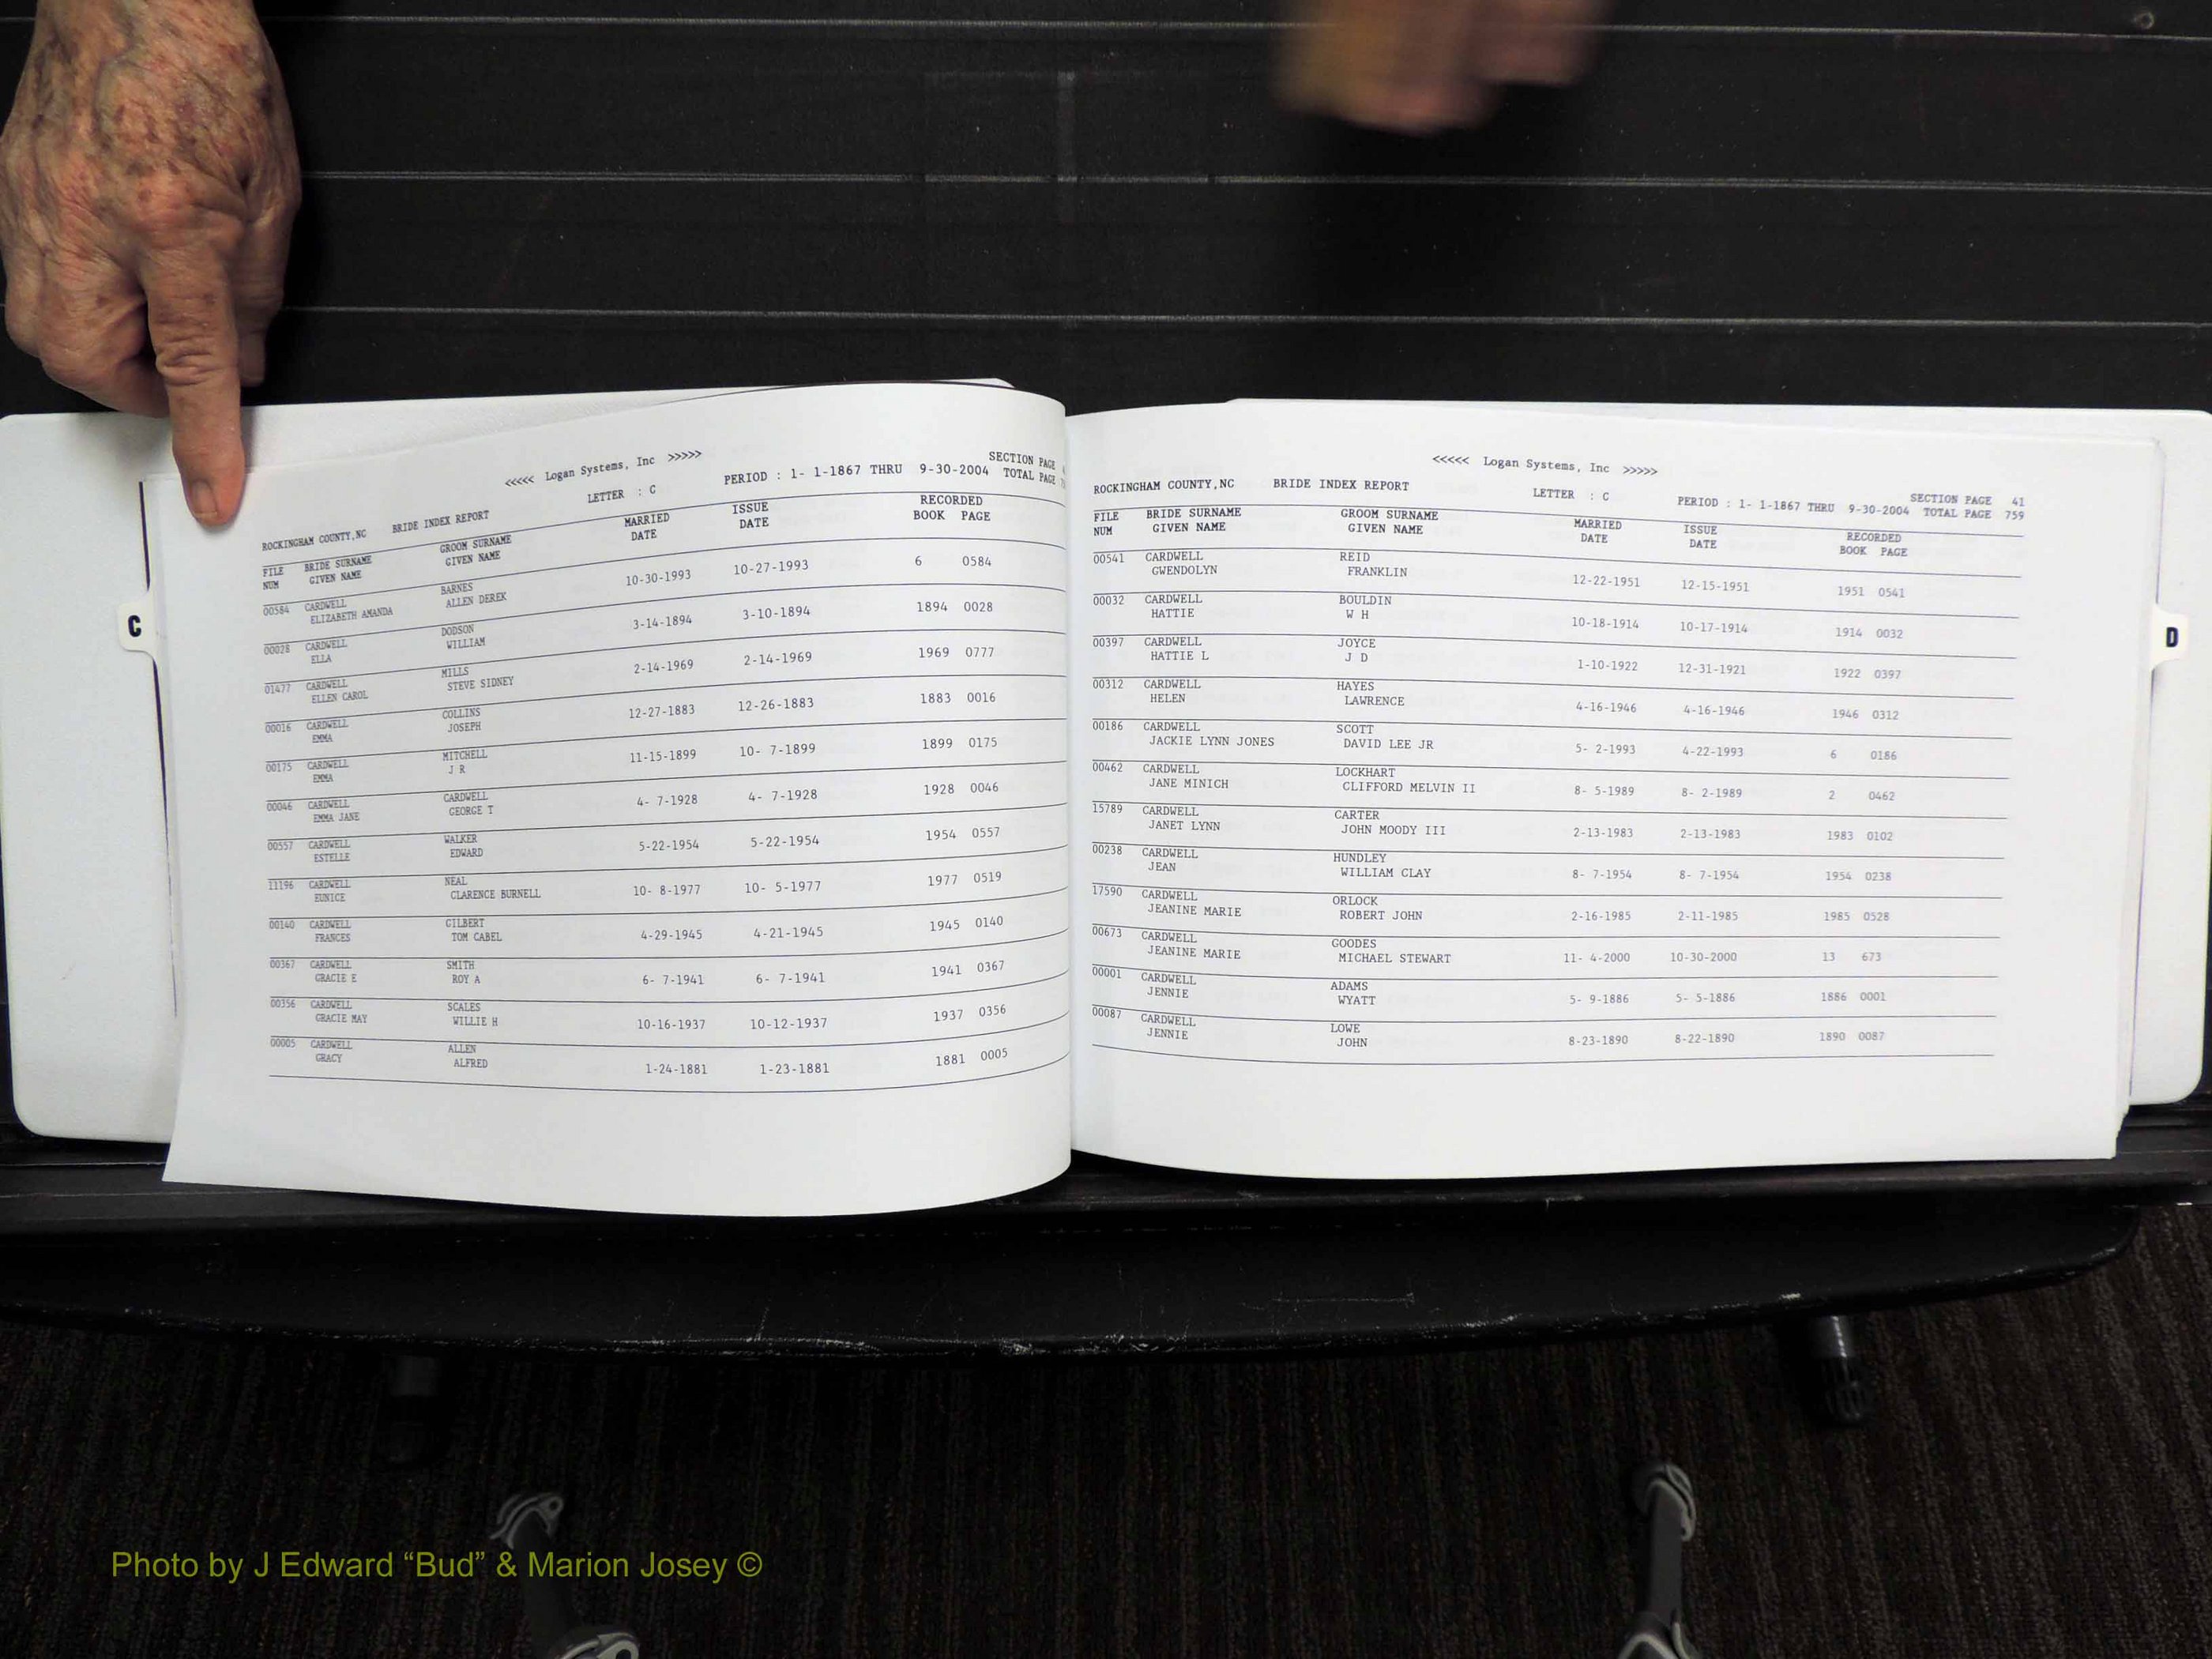 <<<<< Logan Systems, Inc >>>>>
SECTION PAGE
ROCKINGHAM COUNTY,NC BRIDE INDEX REPORT LETTER : C PERIOD : 1- 1-1867 THRU 9-30-2004 TOTAL PAGE
FILE BRIDE SURNAME GROOM SURNAME MARRIED ISSUE RECORDED
NUM GIVEN NAME GIVEN NAME DATE DATE BOOK PAGE
00584 CARDWELL BARNES
ELIZABETH AMANDA ALLEN DEREK 10-30-1993 10-27-1993 6 0584
00028 CARDWELL DODSON
ELLA WILLIAM 3-14-1894 3-10-1894 1894 0028
01477 CARDWELL MILLS
ELLEN CAROL STEVE SIDNEY 2-14-1969 2-14-1969 1969 0777
00016 CARDWELL COLLINS
EMMA JOSEPH 12-27-1883 12-26-1883 1883 0016
00175 CARDWELL MITCHELL
EMMA J R 11-15-1899 10- 7-1899 1899 0175
00046 CARDWELL CARDWELL
EMMA JANE GEORGE T 4- 7-1928 4- 7-1928 1928 0046
00557 CARDWELL WALKER
ESTELLE EDWARD 5-22-1954 5-22-1954 1954 0557
11196 CARDWELL NEAL
EUNICE CLARENCE BURNELL 10- 8-1977 10- 5-1977 1977 0519
00140 CARDWELL GILBERT
FRANCES TOM CABEL 4-29-1945 4-21-1945 1945 0140
00367 CARDWELL SMITH
GRACIE E ROY A 6- 7-1941 6- 7-1941 1941 0367
00356 CARDWELL SCALES
GRACIE MAY WILLIE H 10-16-1937 10-12-1937 1937 0356
00005 CARDWELL ALLEN
GRACY ALFRED 1-24-1881 1-23-1881 1881 0005
C
<<<<< Logan Systems, Inc >>>>>
SECTION PAGE 41
ROCKINGHAM COUNTY,NC BRIDE INDEX REPORT LETTER : C PERIOD : 1- 1-1867 THRU 9-30-2004 TOTAL PAGE 759
FILE BRIDE SURNAME GROOM SURNAME MARRIED ISSUE RECORDED
NUM GIVEN NAME GIVEN NAME DATE DATE BOOK PAGE
00541 CARDWELL REID
GWENDOLYN FRANKLIN 12-22-1951 12-15-1951 1951 0541
00032 CARDWELL BOULDIN
HATTIE W H 10-18-1914 10-17-1914 1914 0032
00397 CARDWELL JOYCE
HATTIE L J D 1-10-1922 12-31-1921 1922 0397
00312 CARDWELL HAYES
HELEN LAWRENCE 4-16-1946 4-16-1946 1946 0312
00186 CARDWELL SCOTT
JACKIE LYNN JONES DAVID LEE JR 5- 2-1993 4-22-1993 6 0186
00462 CARDWELL LOCKHART
JANE MINICH CLIFFORD MELVIN II 8- 5-1989 8- 2-1989 2 0462
15789 CARDWELL CARTER
JANET LYNN JOHN MOODY III 2-13-1983 2-13-1983 1983 0102
00238 CARDWELL HUNDLEY
JEAN WILLIAM CLAY 8- 7-1954 8- 7-1954 1954 0238
17590 CARDWELL ORLOCK
JEANINE MARIE ROBERT JOHN 2-16-1985 2-11-1985 1985 0528
00673 CARDWELL GOODES
JEANINE MARIE MICHAEL STEWART 11- 4-2000 10-30-2000 13 673
00001 CARDWELL ADAMS
JENNIE WYATT 5- 9-1886 5- 5-1886 1886 0001
00087 CARDWELL LOWE
JENNIE JOHN 8-23-1890 8-22-1890 1890 0087
D
Photo by J Edward “Bud” & Marion Josey ©